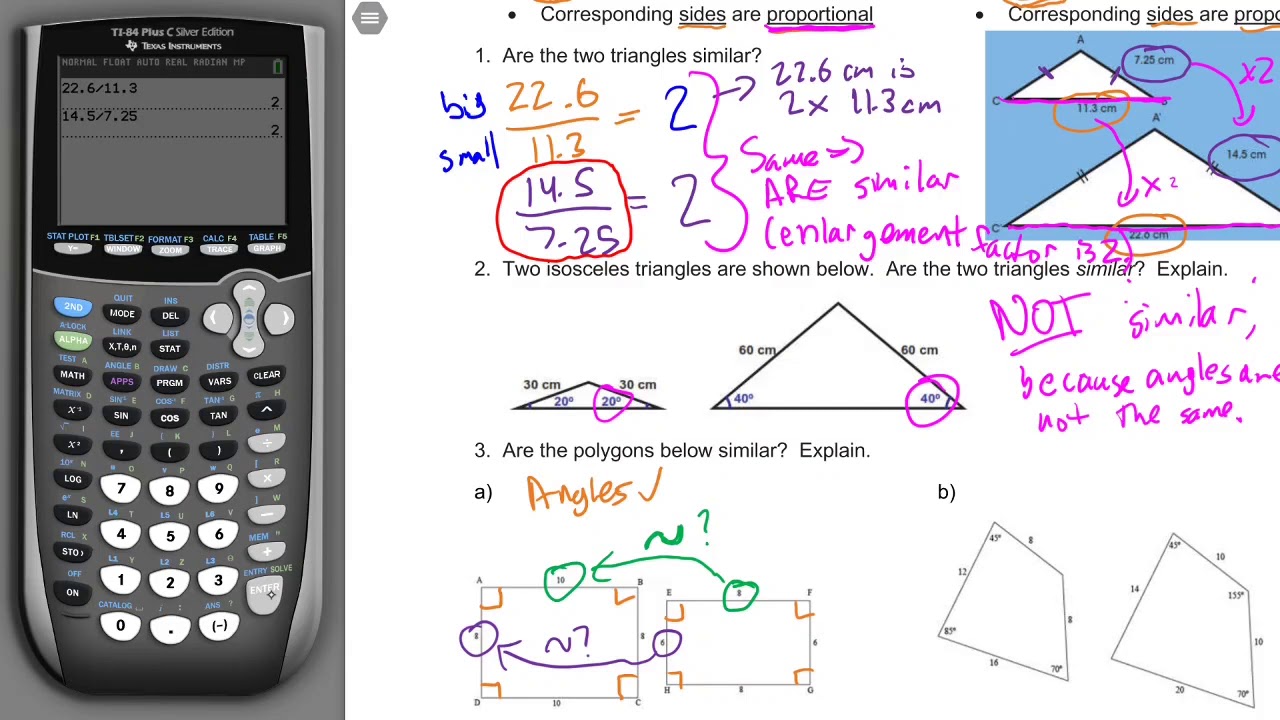 TI-84 Plus C Silver Edition
TEXAS INSTRUMENTS
NORMAL FLOAT AUTO REAL RADIAN MP
22.6/11.3
2
14.5/7.25
2
STAT PLOT F1 TBLSET F2 FORMAT F3 CALC F4 TABLE F5
Y= WINDOW ZOOM TRACE GRAPH
QUIT INS
2ND MODE DEL
A-LOCK LINK LIST
ALPHA X,T,θ,n STAT
TEST A ANGLE B DRAW C DISTR
MATH APPS PRGM VARS CLEAR
MATRIX D SIN⁻¹ E COS⁻¹ F TAN⁻¹ G π H
X⁻¹ SIN COS TAN ^
√ I EE J { K } L e M
X² , ( ) ÷
10ˣ N u O v P w Q [ R
LOG 7 8 9 ×
eˣ S L4 T L5 U L6 V ] W
LN 4 5 6 −
RCL X L1 Y L2 Z L3 θ MEM "
STO› 1 2 3 +
OFF CATALOG ⎵ i : ANS ? ENTRY SOLVE
ON 0 . (-) ENTER
• Corresponding sides are proportional
• Corresponding sides are propo
1. Are the two triangles similar?
big 22.6 = 2
small 11.3
14.5 = 2
7.25
22.6 cm is
2x 11.3 cm
Same =>
ARE similar
(enlargement factor is 2)
A
7.25 cm
x2
C
B
11.3 cm
A'
14.5 cm
x 2
C'
22.6 cm
2. Two isosceles triangles are shown below. Are the two triangles similar? Explain.
30 cm 30 cm
20° 20°
60 cm 60 cm
40° 40°
NOT similar,
because angles are
not the same.
3. Are the polygons below similar? Explain.
a) Angles ✓
~?
A 10 B
8 8
D 10 C
~?
E 8 F
6 6
H 8 G
b)
45° 8
12
8
85°
16
70°
45° 10
14
155°
10
20
70°